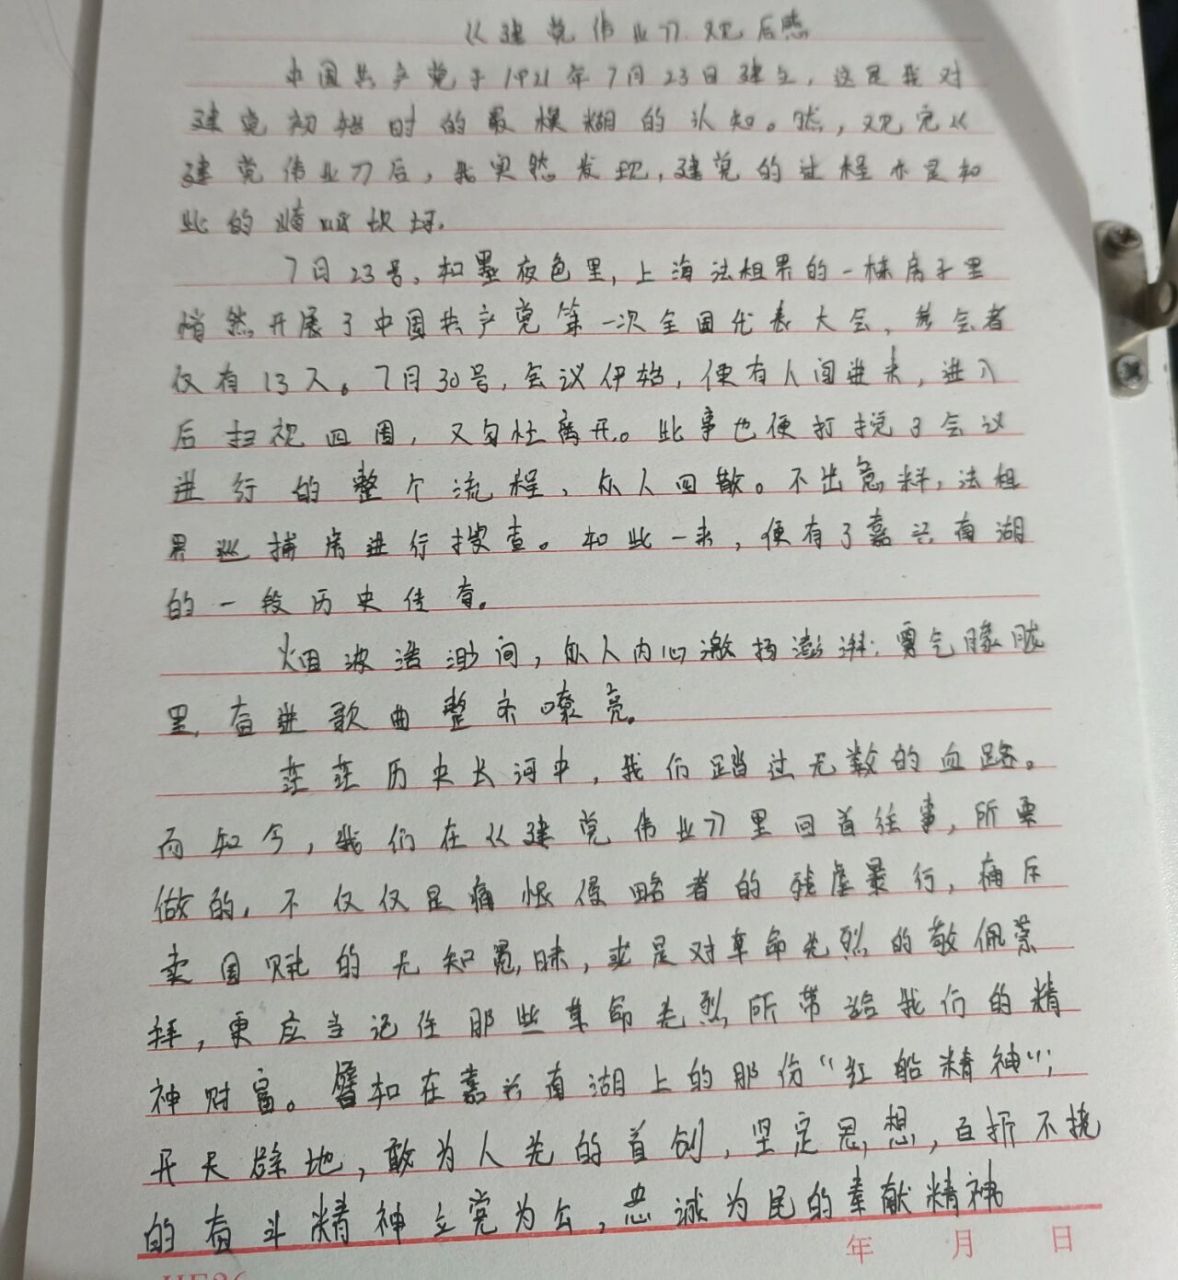 《建党伟业》观后感
中国共产党于1921年7月23日建立，这是我对
建党初始时的最模糊的认知。然，观完《
建党伟业》后，我突然发现，建党的过程亦是如
此的崎岖坎坷。
7月23号，如墨夜色里，上海法租界的一栋房子里
悄然开展了中国共产党第一次全国代表大会，参会者
仅有13人。7月30号，会议伊始，便有人闯进来，进入
后扫视四周，又匆忙离开。此事也便打搅了会议
进行的整个流程，众人四散。不出意料，法租
界巡捕房进行搜查。如此一来，便有了嘉兴南湖
的一段历史佳有。
烟波浩渺间，众人内心激扬澎湃；雾气朦胧
里，奋进歌曲整齐嘹亮。
茫茫历史长河中，我们踏过无数的血路。
而如今，我们在《建党伟业》里回首往事，所要
做的，不仅仅是痛恨侵略者的残虐暴行，痛斥
卖国贼的无知愚昧，或是对革命先烈的敬佩崇
拜，更应当记住那些革命先烈所带给我们的精
神财富。譬如在嘉兴南湖上的那份“红船精神”；
开天辟地，敢为人先的首创，坚定思想，百折不挠
的奋斗精神立党为公，忠诚为民的奉献精神
年 月 日